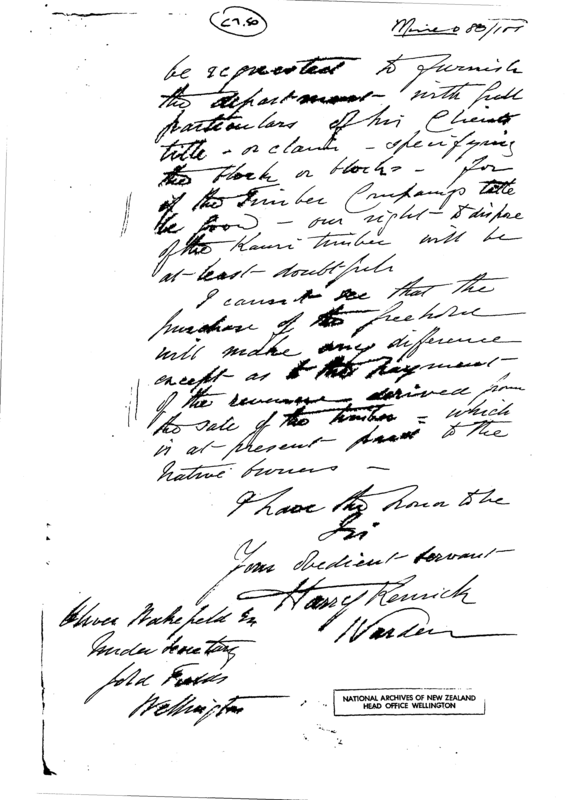 C7.50
Mines 83/
be requested to furnish
the department - with full
particulars of his Clients
title - or claim - specifying
the block or blocks - for
if the Timber Companys title
be good - our right - to dispose
of the Kauri timber will be
at-least - doubtful
I cannot see that the
purchase of the freehold
will make any difference
except as to the payment -
of the revenue derived from
the sale of the timber - which
is at - present paid to the
Native Owners -
I have the honor to be
Sir
Your obedient - servant -
Harry Kenrick
Warden
Oliver Wakefield Esq
Under Secretary
Gold Fields
Wellington
NATIONAL ARCHIVES OF NEW ZEALAND
HEAD OFFICE WELLINGTON